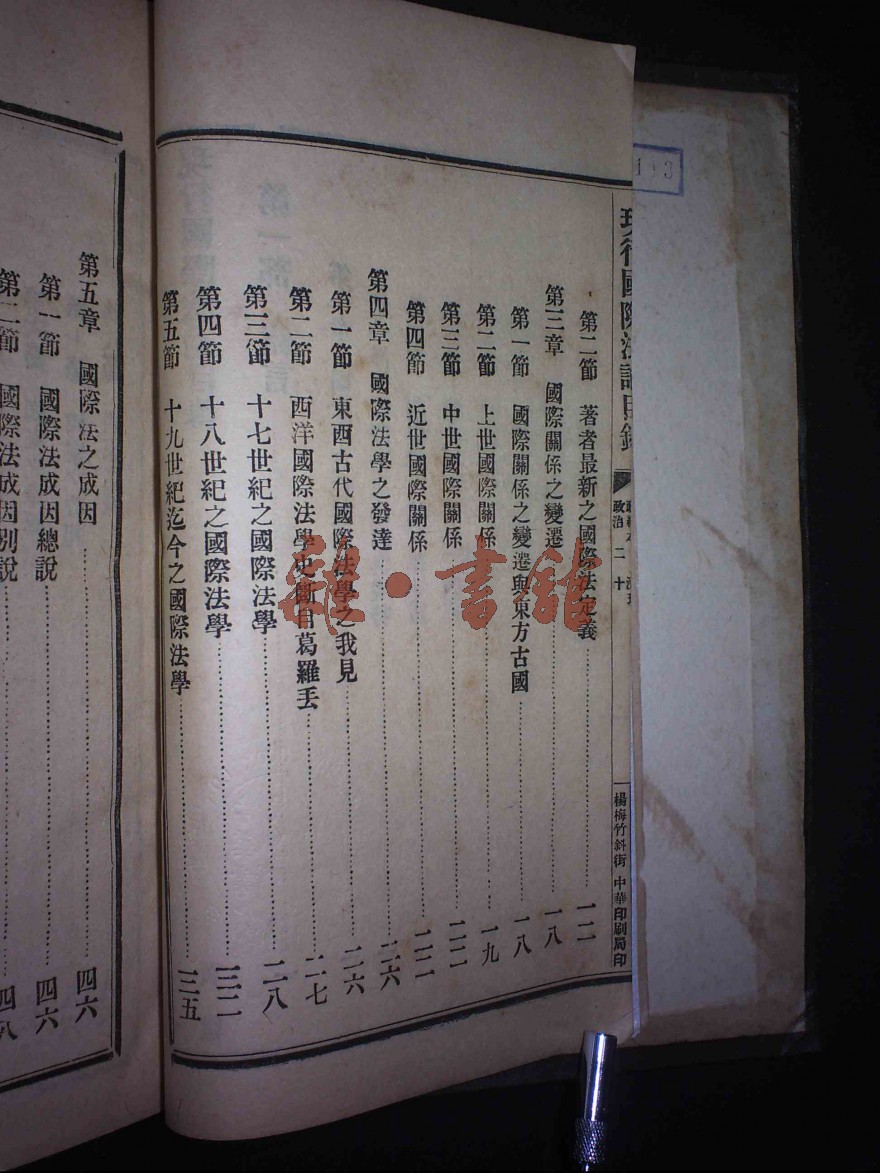 113
現行國際法講目錄
政治二 十
楊梅竹斜街 中華印刷局印
第二節 著者最新之國際法定義 一二
第三章 國際關係之變遷 一八
第一節 國際關係之變遷與東方古國 一八
第二節 上世國際關係 一九
第三節 中世國際關係
第四節 近世國際關係
第四章 國際法學之發達 二六
第一節 東西古代國際法學之我見 二六
第二節 西洋國際法學史斷自葛羅丢 二七
第三節 十七世紀之國際法學 二八
第四節 十八世紀之國際法學 三二
第五節 十九世紀迄今之國際法學 三五
第五章 國際法之成因 四六
第一節 國際法成因總說 四六
第二節 國際法成因別說 四八
雜·書館